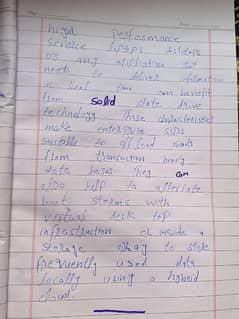 high performance
service laptops desktops
or any application that
needs to deliver information
in real time can benefit
from solid state drive
technology These characteristics
make enterprise SSDs
suitable to offload reads
from transaction heavy
data bases They can
also help to alleviate
boot storms with
virtual desk top
infrastruction or inside a
storage array to store
frequently used data
locally using a hybrid
cloud.